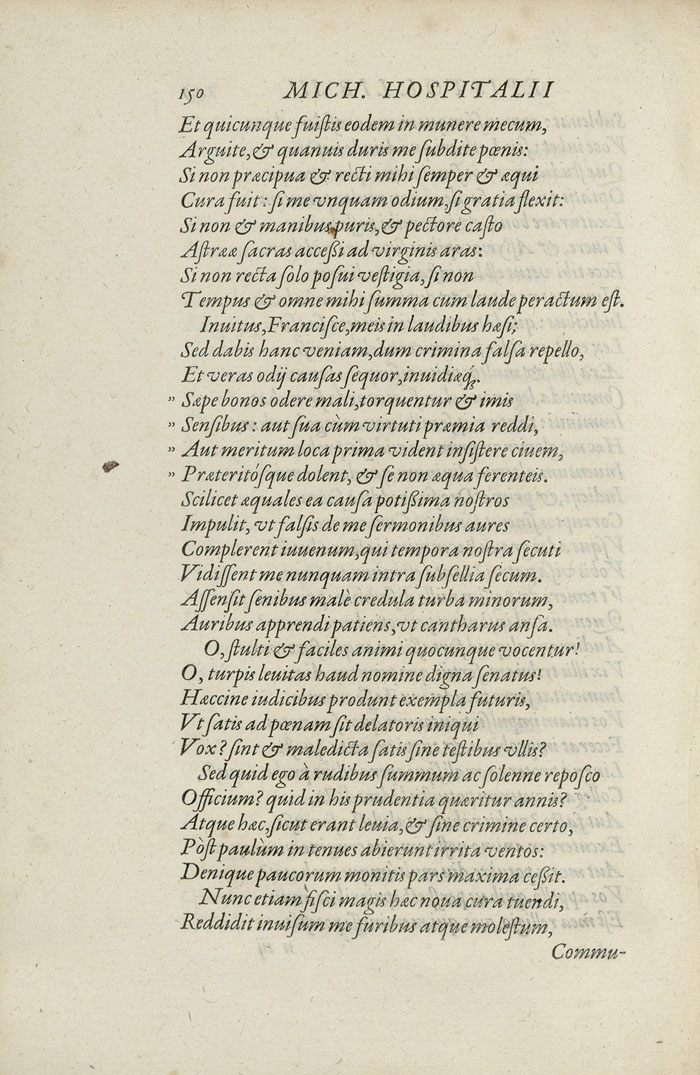 150 MICH. HOSPITALII
Et quicunque fuiſtis eodem in munere mecum,
Arguite, & quanuis duris me ſubdite pœnis:
Si non præcipua & recti mihi ſemper & æqui
Cura fuit: ſi me vnquam odium, ſi gratia flexit:
Si non & manibus puris, & pectore caſto
Aſtrææ ſacras acceßi ad virginis aras:
Si non recta ſolo poſui veſtigia, ſi non
Tempus & omne mihi ſumma cum laude peractum eſt.
Inuitus, Franciſce, meis in laudibus hæſi;
Sed dabis hanc veniam, dum crimina falſa repello,
Et veras odij cauſas ſequor, inuidiæq́;.
" Sæpe bonos odere mali, torquentur & imis
" Senſibus: aut ſua cùm virtuti præmia reddi,
" Aut meritum loca prima vident inſiſtere ciuem,
" Præteritóſque dolent, & ſe non æqua ferenteis.
Scilicet æquales ea cauſa potißima noſtros
Impulit, vt falſis de me ſermonibus aures
Complerent iuuenum, qui tempora noſtra ſecuti
Vidiſſent me nunquam intra ſubſellia ſecum.
Aſſenſit ſenibus malè credula turba minorum,
Auribus apprendi patiens, vt cantharus anſa.
O, ſtulti & faciles animi quocunque vocentur!
O, turpis leuitas haud nomine digna ſenatus!
Hæccine iudicibus produnt exempla futuris,
Vt ſatis ad pœnam ſit delatoris iniqui
Vox? ſint & maledicta ſatis ſine teſtibus vllis?
Sed quid ego à rudibus ſummum ac ſolenne repoſco
Officium? quid in his prudentia quæritur annis?
Atque hæc, ſicut erant leuia, & ſine crimine certo,
Pòſt paulùm in tenues abierunt irrita ventos:
Denique paucorum monitis pars maxima ceßit.
Nunc etiam fiſci magis hæc noua cura tuendi,
Reddidit inuiſum me furibus atque moleſtum,
Commu-